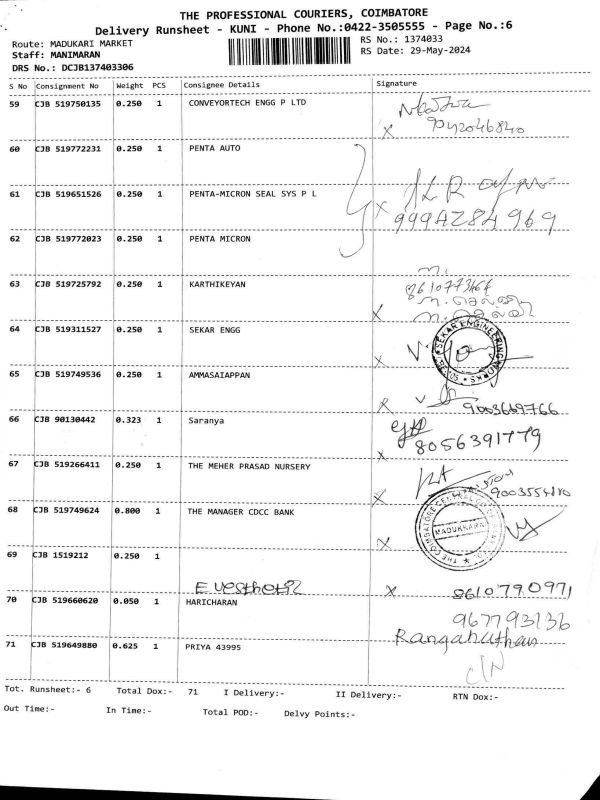 THE PROFESSIONAL COURIERS, COIMBATORE
Delivery Runsheet - KUNI - Phone No.:0422-3505555 - Page No.:6
Route: MADUKARI MARKET
RS No.: 1374033
Staff: MANIMARAN
RS Date: 29-May-2024
DRS No.: DCJB137403306
S No Consignment No Weight PCS Consignee Details Signature
59 CJB 519750135 0.250 1 CONVEYORTECH ENGG P LTD
X 9042046840
60 CJB 519772231 0.250 1 PENTA AUTO
61 CJB 519651526 0.250 1 PENTA-MICRON SEAL SYS P L
X 9994284969
62 CJB 519772023 0.250 1 PENTA MICRON
63 CJB 519725792 0.250 1 KARTHIKEYAN
X
64 CJB 519311527 0.250 1 SEKAR ENGG
SEKAR ENGINEERING WORKS
X
65 CJB 519749536 0.250 1 AMMASAIAPPAN
X 9003669766
66 CJB 90130442 0.323 1 Saranya
8056391779
X
67 CJB 519266411 0.250 1 THE MEHER PRASAD NURSERY
X
68 CJB 519749624 0.800 1 THE MANAGER CDCC BANK
MADUKKARAI
X
69 CJB 1519212 0.250 1
X 8610790971
70 CJB 519660620 0.050 1 HARICHARAN
967793136
Ranganathan
71 CJB 519649880 0.625 1 PRIYA 43995
Tot. Runsheet:- 6 Total Dox:- 71 I Delivery:- II Delivery:- RTN Dox:-
Out Time:- In Time:- Total POD:- Delvy Points:-